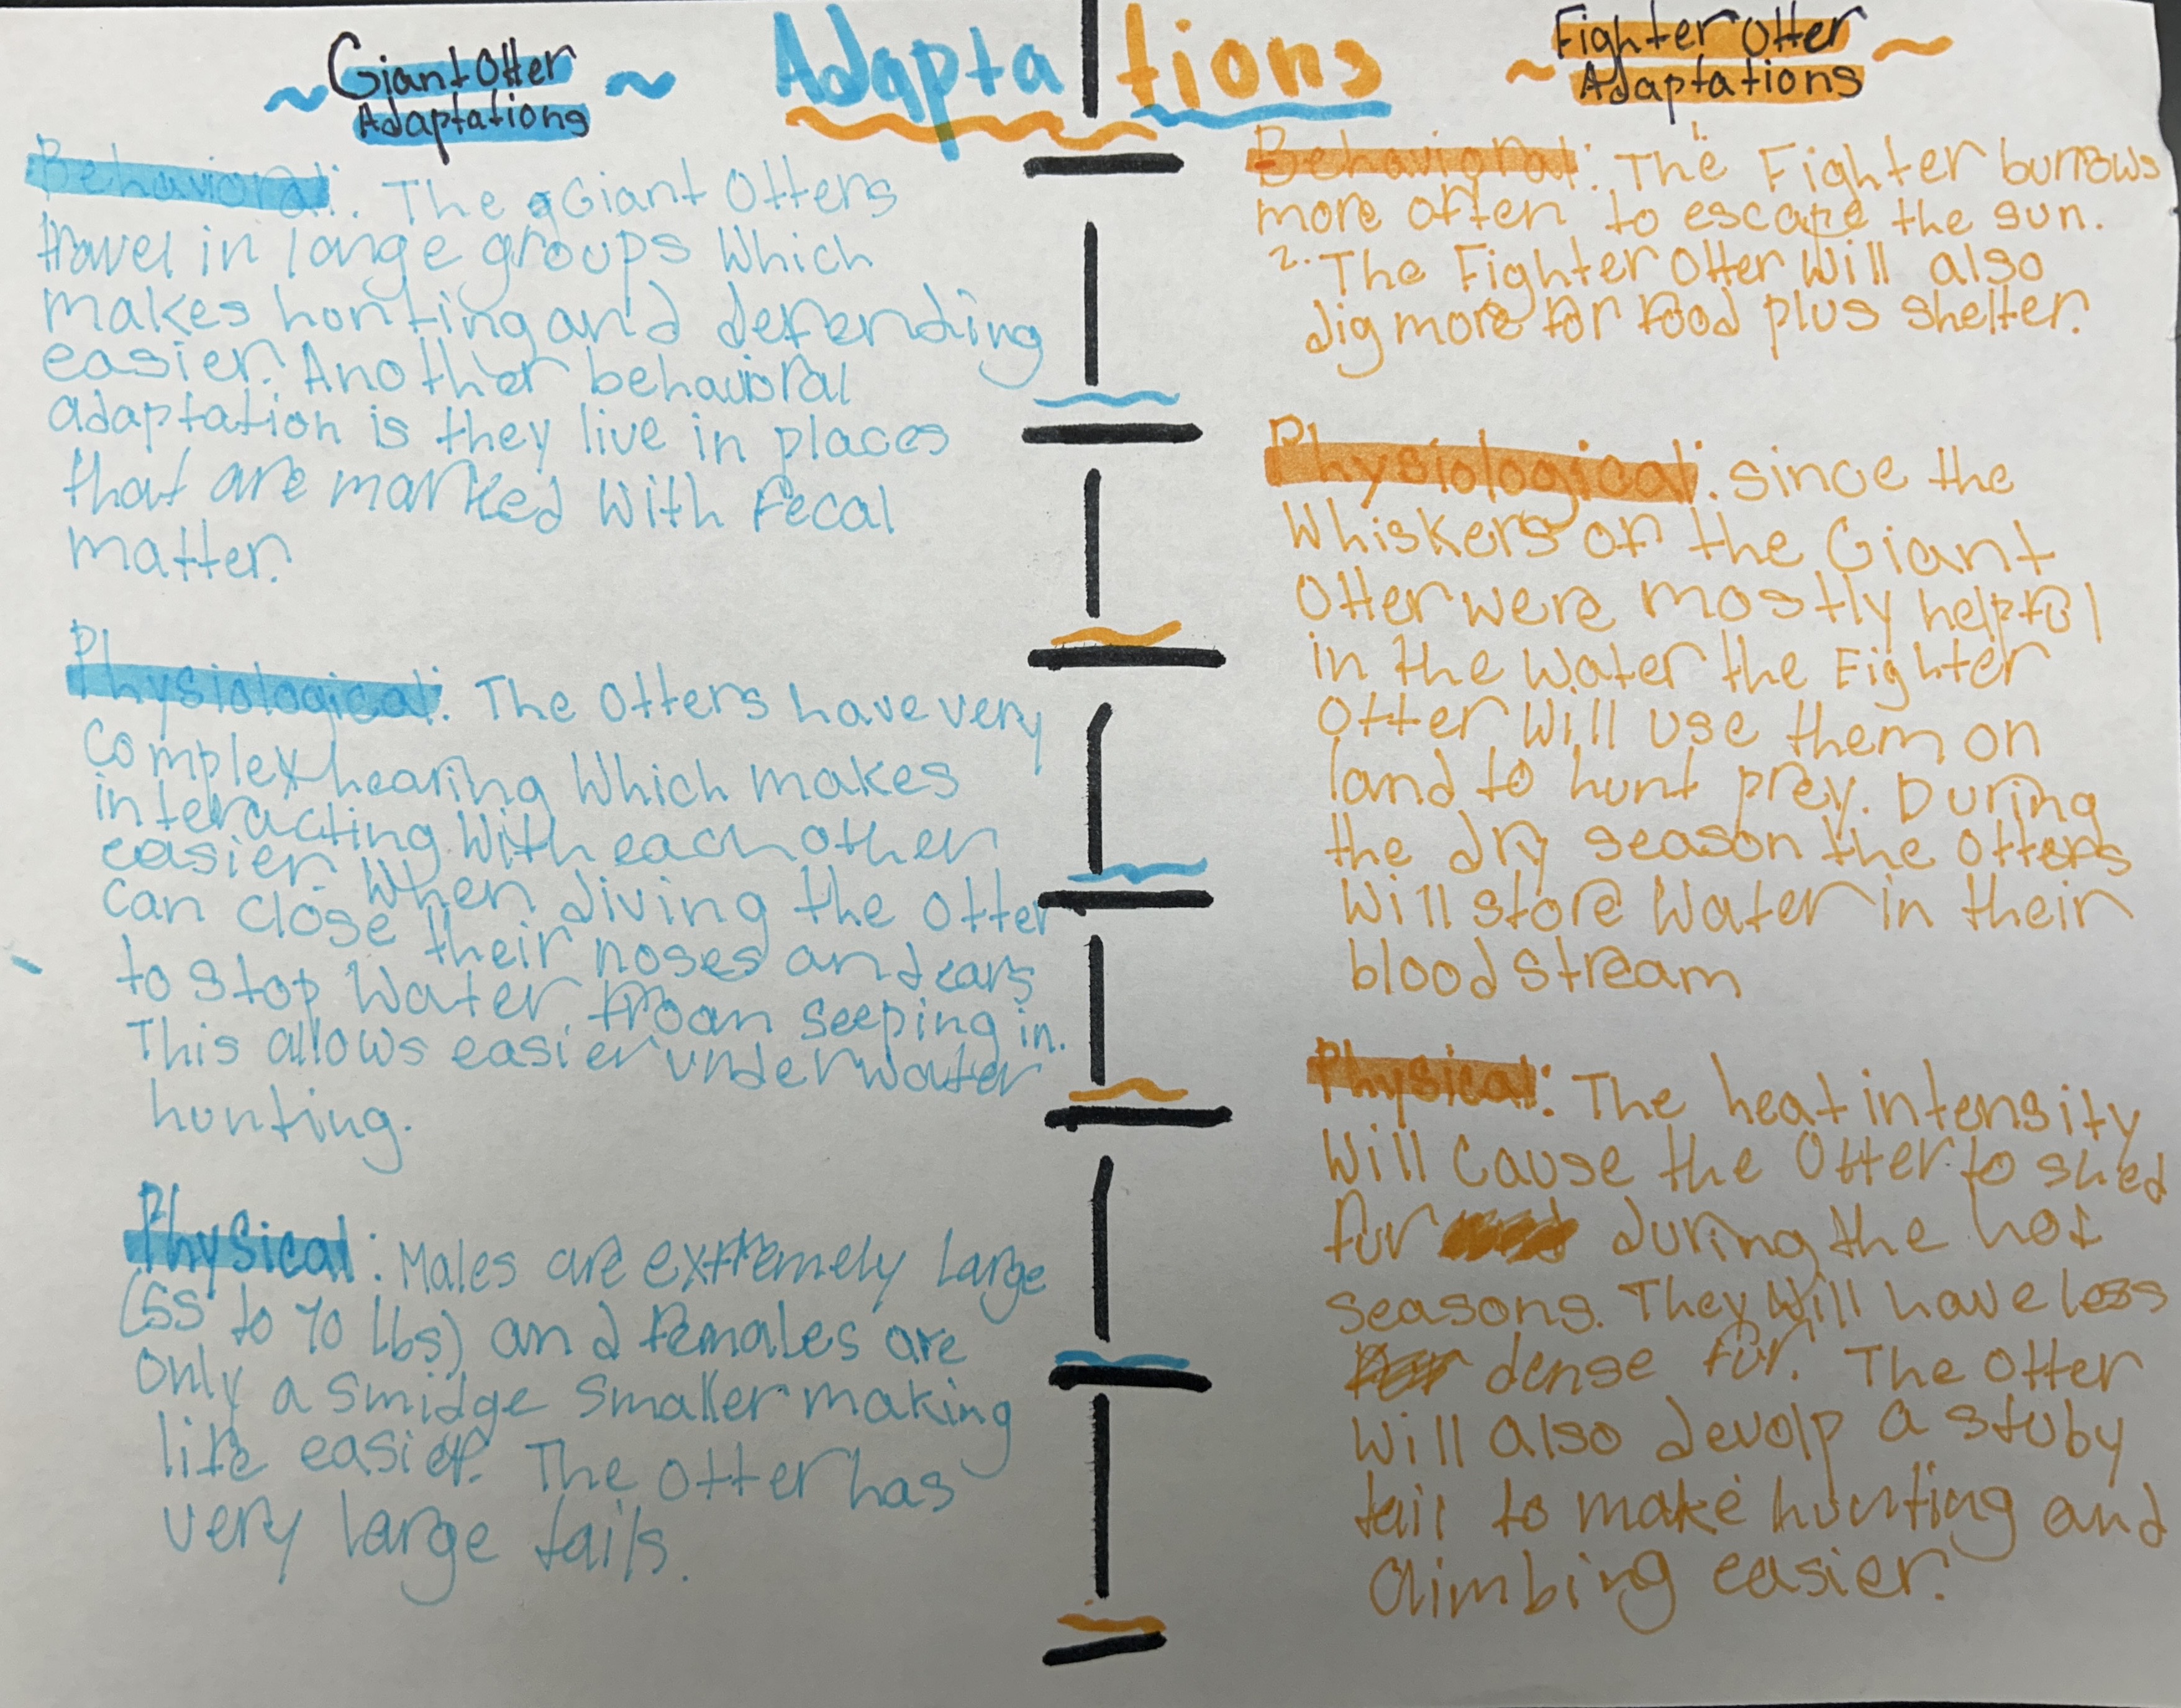 Adaptations
Giant Otter
Adaptations
Behavioral: The Giant Otters
travel in large groups which
makes hunting and defending
easier. Another behavioral
adaptation is they live in places
that are marked with fecal
matter.
Physiological: The Otters have very
complex hearing which makes
interacting with each other
easier. When diving the otter
can close their noses and ears
to stop water froam seeping in.
This allows easier underwater
hunting.
Physical: Males are extremely large
(55 to 70 lbs) and females are
only a smidge smaller making
life easier. The otter has
very large tails.
Fighter Otter
Adaptations
Behavioral: The Fighter burrows
more often to escape the sun.
2. The Fighter Otter will also
dig more for food plus shelter.
Physiological: since the
Whiskers of the Giant
Otter were mostly helpful
in the water the Fighter
Otter will use them on
land to hunt prey. During
the dry season the otters
will store water in their
blood stream
Physical: The heat intensity
will cause the Otter to shed
fur during the hot
seasons. They will have less
dense fur. The otter
will also devolp a stuby
tail to make hunting and
climbing easier.